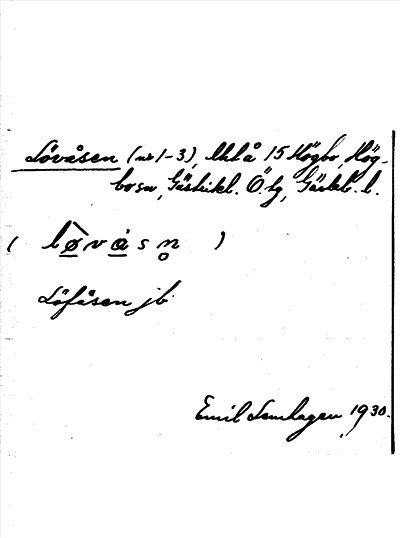 Lövåsen (nr 1-3), lhtå 15 Högbo, Hög-
bo sn, Gästrikl. Ö. tg, Gävleb. l.
( løvåsn )
Löfåsen jb
Emil Lemhagen 1930.